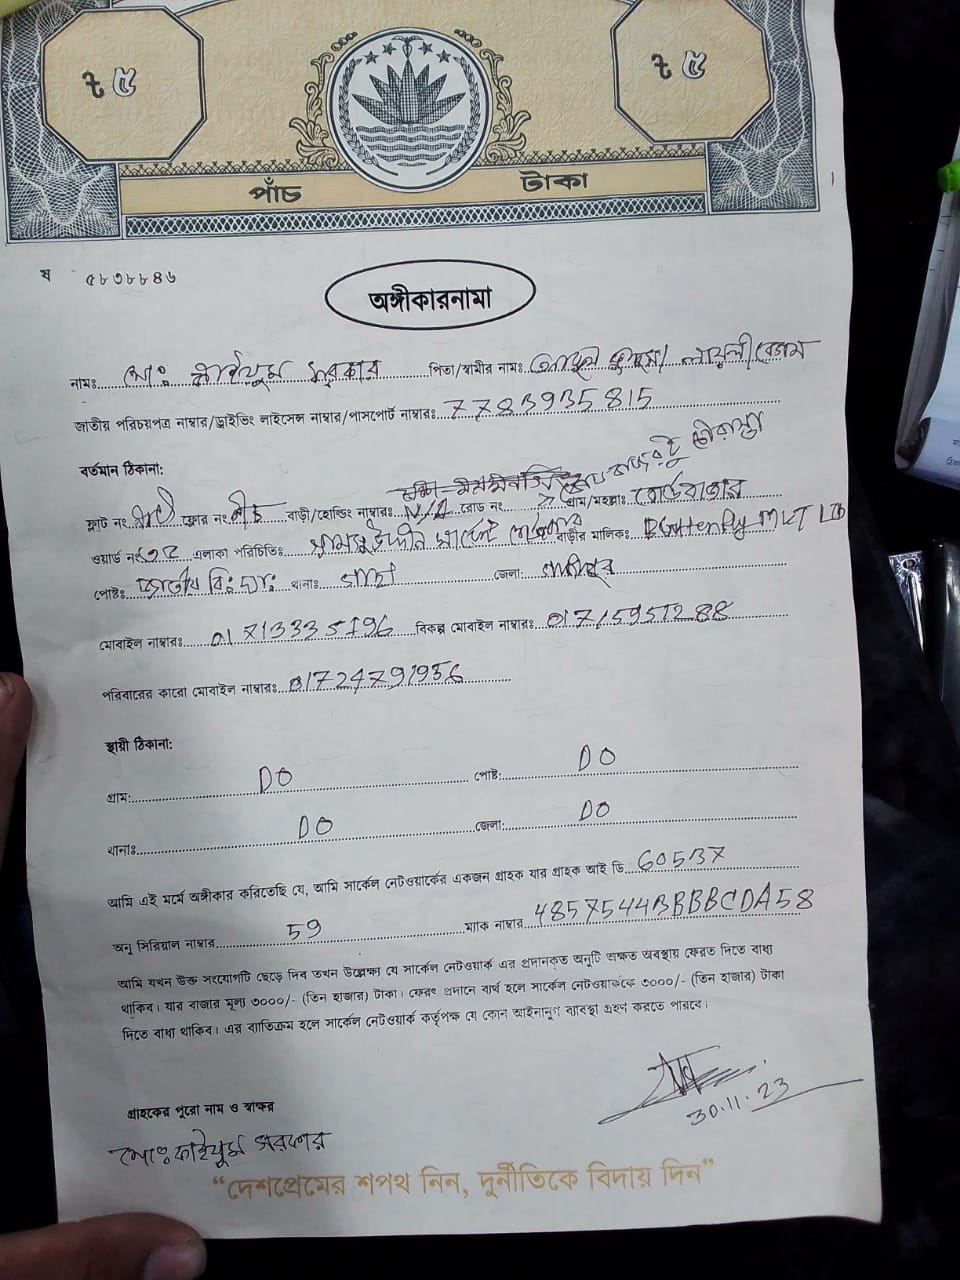 ৳ ৫ ৳ ৫
পাঁচ টাকা
ষ ৫৮৩৮৮৪৬
অঙ্গীকারনামা
নামঃ মোঃ কাইয়ুম সরকার পিতা/স্বামীর নামঃ বেগম
জাতীয় পরিচয়পত্র নাম্বার/ড্রাইভিং লাইসেন্স নাম্বার/পাসপোর্ট নাম্বারঃ 7783935815
বর্তমান ঠিকানা:
ফ্লাট নং ফ্লোর নং বাড়ী/হোল্ডিং নাম্বারঃ N/A রোড নং গ্রাম/মহল্লাঃ বোর্ডবাজার
ওয়ার্ড নং এলাকা পরিচিতিঃ বাড়ীর মালিকঃ
পোষ্টঃ জাতীয় বিঃ থানাঃ গাছা জেলা: গাজীপুর
মোবাইল নাম্বারঃ 01713335196 বিকল্প মোবাইল নাম্বারঃ 01715951288
পরিবারের কারো মোবাইল নাম্বারঃ 01724791936
স্থায়ী ঠিকানা:
গ্রাম: DO পোষ্ট: DO
থানাঃ DO জেলা: DO
আমি এই মর্মে অঙ্গীকার করিতেছি যে, আমি সার্কেল নেটওয়ার্কের একজন গ্রাহক যার গ্রাহক আই ডি 60537
অনু সিরিয়াল নাম্বার 59 ম্যাক নাম্বার 48575443BBBCDA58
আমি যখন উক্ত সংযোগটি ছেড়ে দিব তখন উল্লেক্ষ্য যে সার্কেল নেটওয়ার্ক এর প্রদানকৃত অনুটি অক্ষত অবস্থায় ফেরত দিতে বাধ্য
থাকিব। যার বাজার মূল্য ৩০০০/- (তিন হাজার) টাকা। ফেরৎ প্রদানে ব্যর্থ হলে সার্কেল নেটওয়ার্ককে ৩০০০/- (তিন হাজার) টাকা
দিতে বাধ্য থাকিব। এর ব্যাতিক্রম হলে সার্কেল নেটওয়ার্ক কর্তৃপক্ষ যে কোন আইনানুগ ব্যাবস্থা গ্রহণ করতে পারবে।
30.11.23
গ্রাহকের পুরো নাম ও স্বাক্ষর
মোঃ কাইয়ুম সরকার
“দেশপ্রেমের শপথ নিন, দুর্নীতিকে বিদায় দিন”